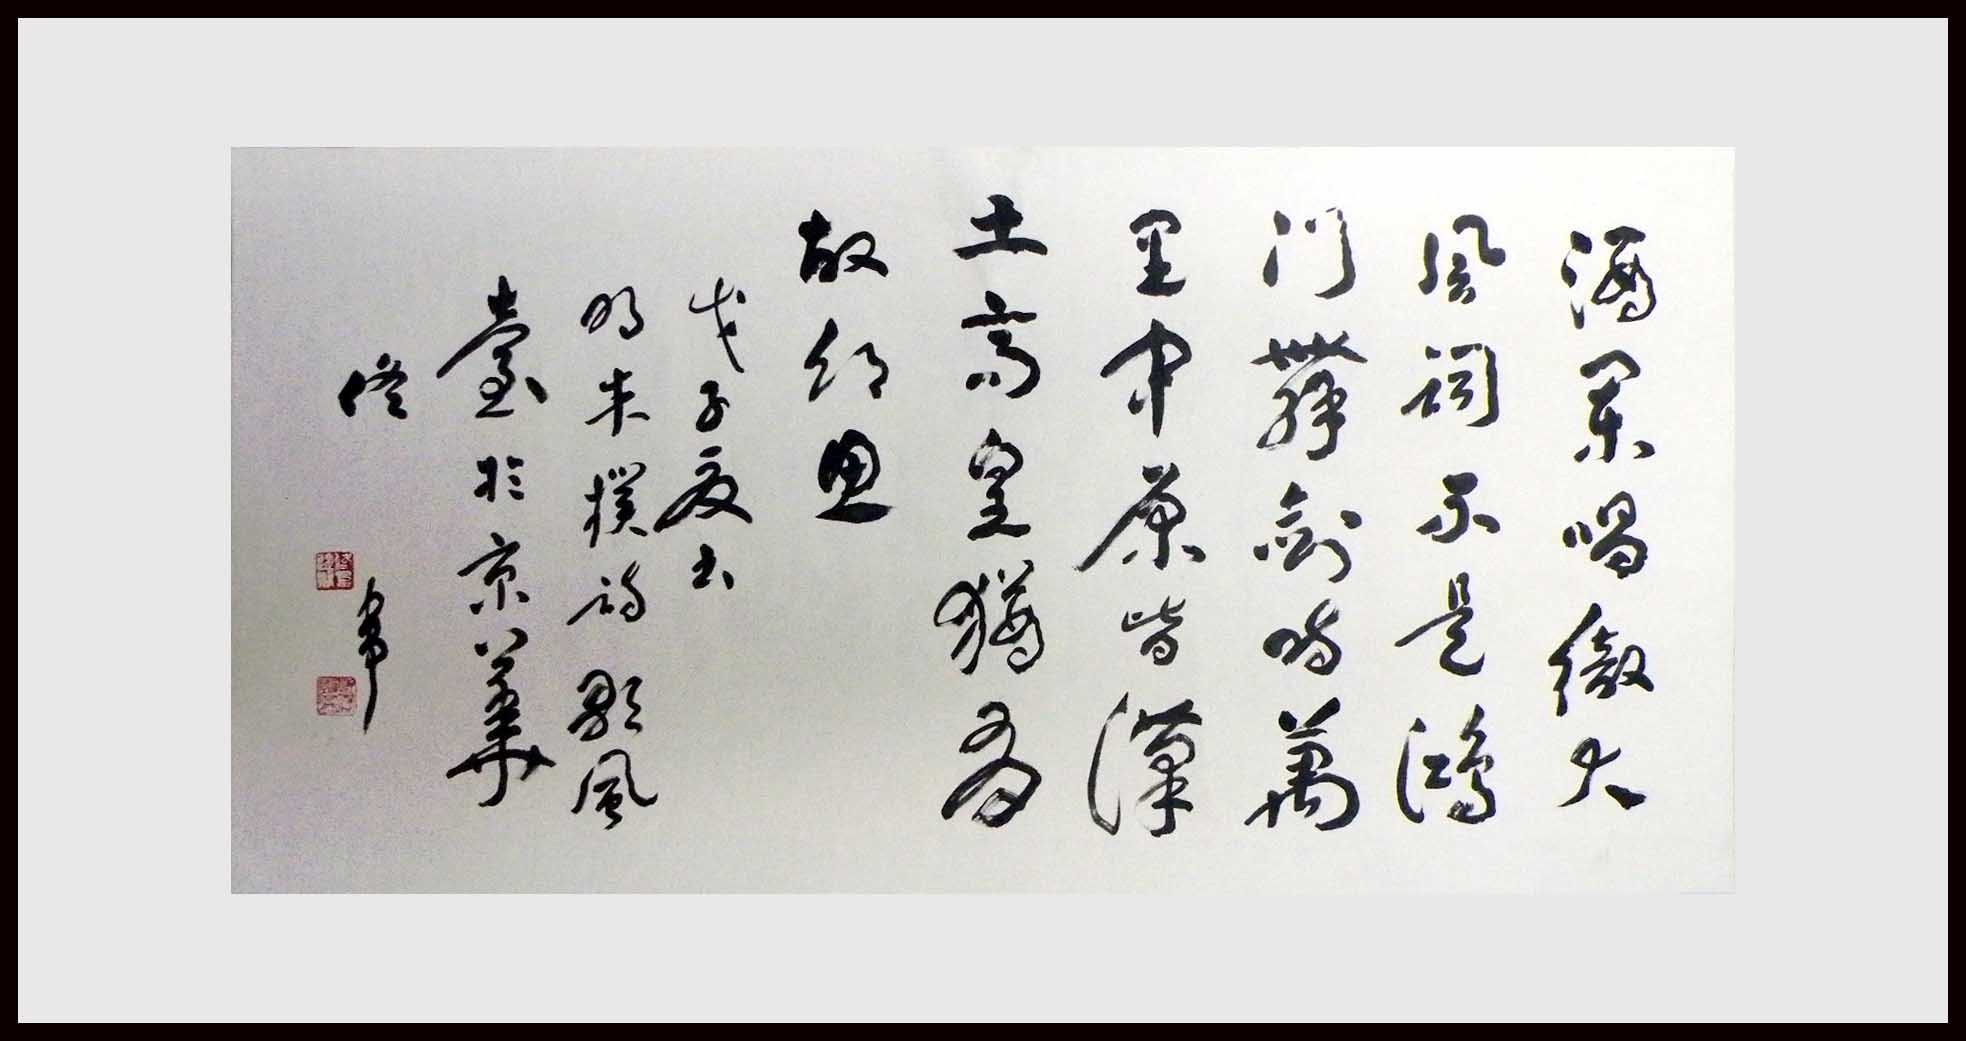 酒闌唱徹大
風詞不是鴻
門舞劍時萬
里中原皆漢
土高皇猶為
故鄉思
戊子夏书
明朱樸詩歌風
臺於京華